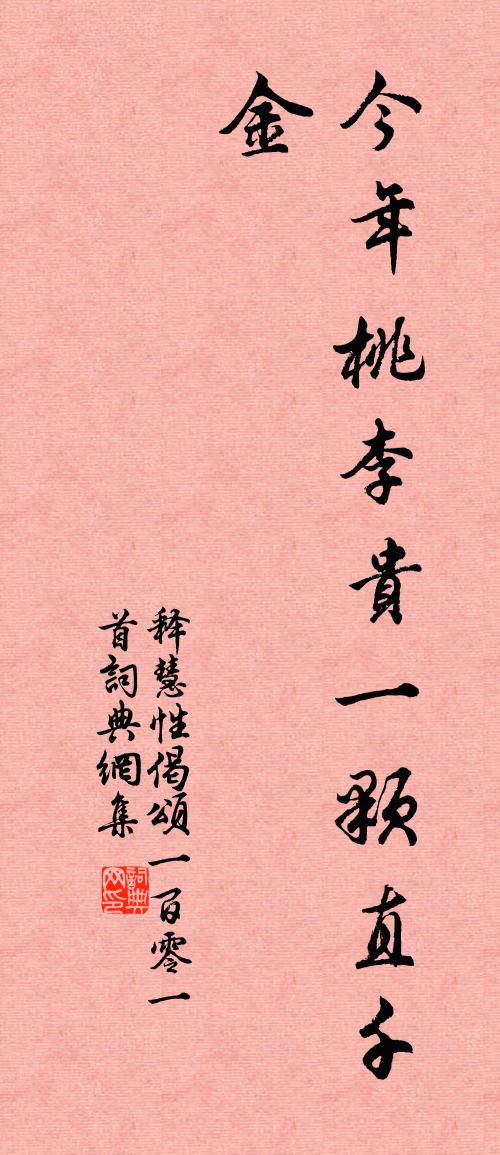 今年桃李貴一顆直千
金
释慧性偈頌一百零一
首詞典網集
詞典
网印